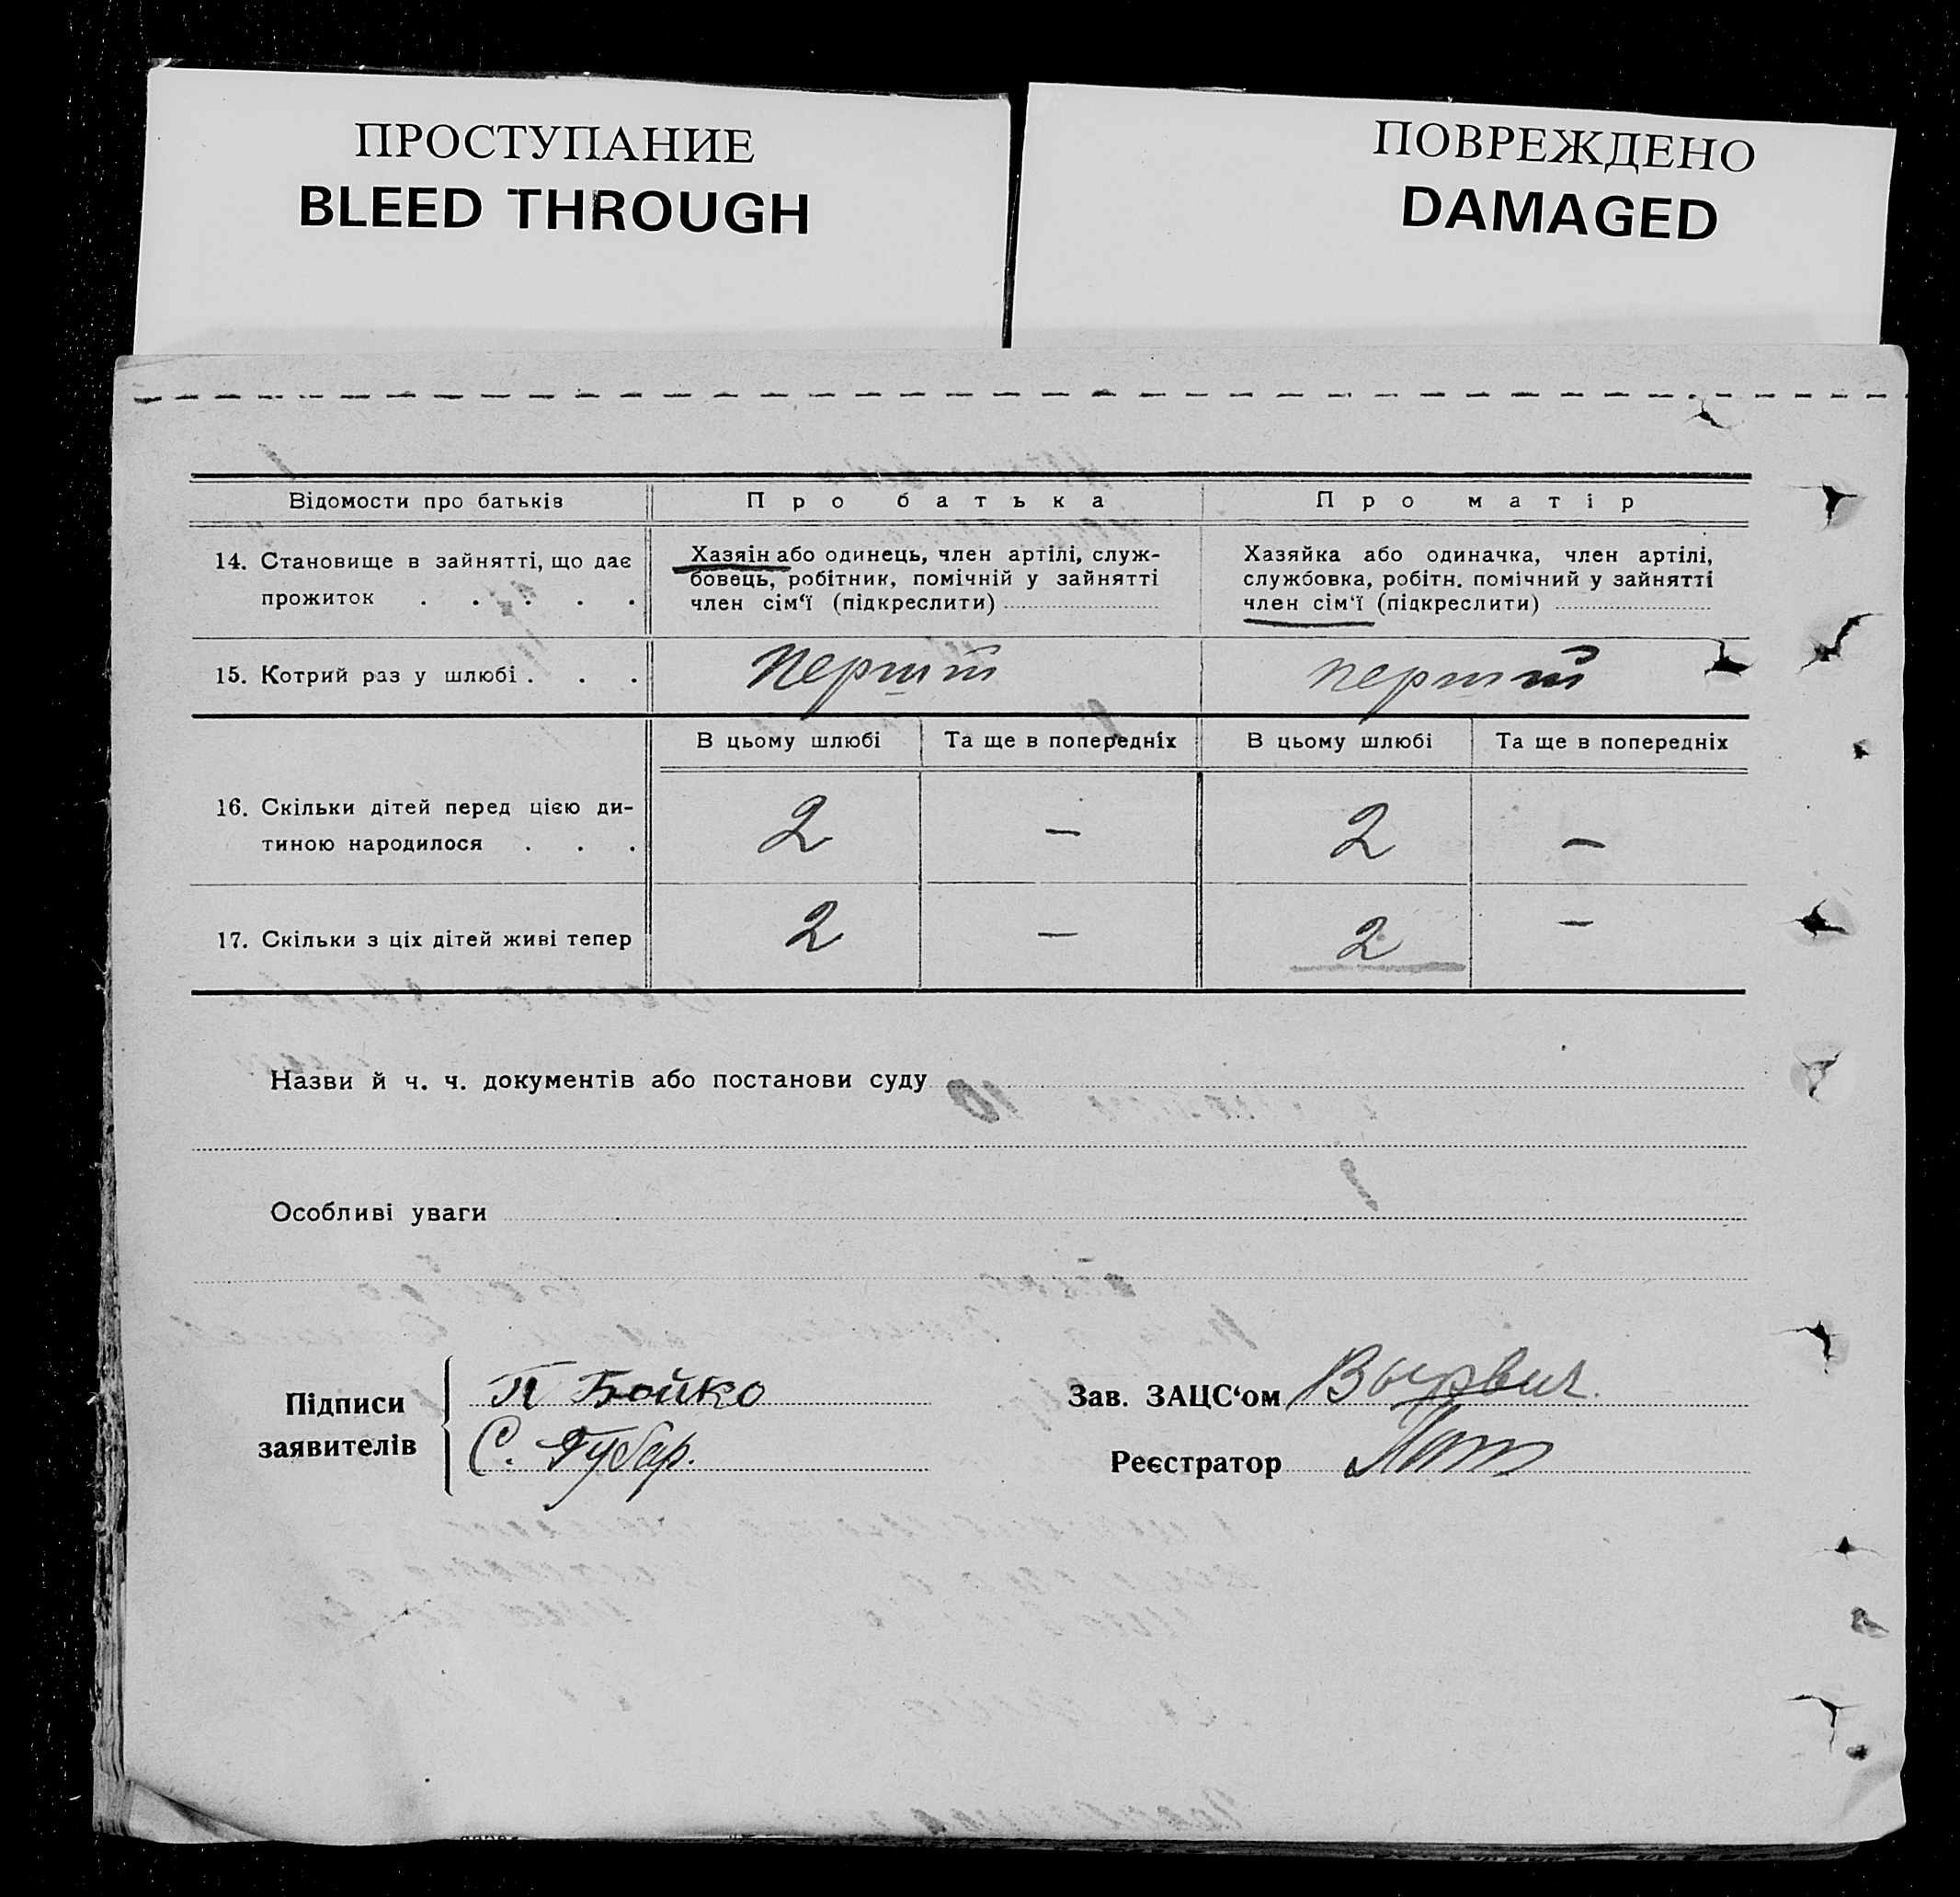 ПРОСТУПАНИЕ
BLEED THROUGH
ПОВРЕЖДЕНО
DAMAGED
Відомости про батьків
Про батька
Про матір
14. Становище в зайнятті, що дає
прожиток . . . . .
Хазяін або одинець, член артілі, служ-
бовець, робітник, помічній у зайнятті
член сім‘ї (підкреслити)
Хазяйка або одиначка, член артілі,
службовка, робітн. помічний у зайнятті
член сім‘ї (підкреслити)
15. Котрий раз у шлюбі . . .
перший
перший
В цьому шлюбі
Та ще в попередніх
В цьому шлюбі
Та ще в попередніх
16. Скільки дітей перед цією ди-
тиною народилося . . .
2
—
2
—
17. Скільки з ціх дітей живі тепер
2
—
2
—
Назви й ч. ч. документів або постанови суду
Особливі уваги
Підписи
заявителів
П Бойко
С. Губар.
Зав. ЗАЦС‘ом
Реєстратор